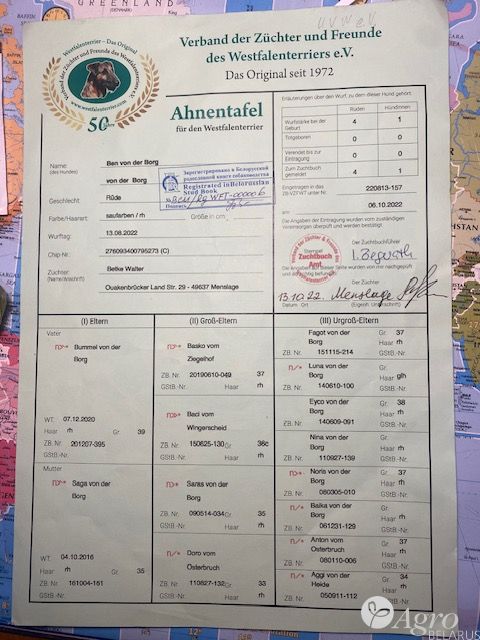 Westfalenterrier – Das Original
Verband der Züchter und Freunde des Westfalenterriers e.V.
www.westfalenterrier.com
50 Jahre
Verband der Züchter und Freunde
des Westfalenterriers e.V.
Das Original seit 1972
Ahnentafel
für den Westfalenterrier
Erläuterungen über den Wurf, zu dem dieser Hund gehört.
Rüden Hündinnen
Wurfstärke bei der Geburt 4 1
Totgeboren 0 0
Verendet bis zur Eintragung 0 0
Zum Zuchtbuch gemeldet 4 1
Eingetragen in das ZB-VZFWT unter Nr. 220813-157
am 06.10.2022
Die Angaben der Eintragung wurden vom zuständigen
Verein sorgsam überprüft und werden bestätigt.
Name: (des Hundes) Ben von der Borg
von der Borg
Geschlecht: Rüde
Farbe/Haarart: saufarben / rh Größe in cm:
Wurftag: 13.08.2022
Chip Nr. 276093400795273 (C)
Züchter: (Name/Anschrift) Betke Walter
Quakenbrücker Land Str. 29 - 49637 Menslage
Зарегистрировано в Белорусской
родословной книге собаководства
Registrated in Belarusian
Stud Book
№ BCU/Rg WFT-000006
Подпись
Stempel
Zuchtbuch
Amt
Der Zuchtbuchführer
Der Züchter
13.10.22 Menslage
Datum Ort (Eigenh. Unterschrift)
(I) Eltern (II) Groß-Eltern (III) Urgroß-Eltern
Vater
Bummel von der
Borg
WT. 07.12.2020 Gr. 39
ZB. Nr. 201207-395 Haar rh
GStB.-Nr.
Mutter
Saga von der
Borg
WT. 04.10.2016 Gr. 35
ZB. Nr. 161004-161 Haar rh
GStB.-Nr.
Basko vom
Ziegelhof
ZB. Nr. 20190610-049 37
GStB-Nr. Haar rh
Baci vom
Wingerscheid
ZB. Nr. 150625-130 Gr. 38c
GStB-Nr. Haar rh
Saras von der
Borg
ZB. Nr. 090514-034 Gr. 35
GStB.-Nr. Haar rh
Doro vom
Osterbruch
ZB. Nr. 110827-132 Gr. 33
GStB.-Nr. Haar rh
Fagot von der Borg Gr. 37
ZB. Nr. 151115-214 Haar rh
GStB.-Nr.
Luna von der Borg Gr.
ZB. Nr. 140610-100 Haar glh
GStB.-Nr.
Eyco von der Borg Gr. 38
ZB. Nr. 140609-091 Haar rh
GStB.-Nr.
Nina von der Borg Gr.
ZB. Nr. 110927-139 Haar rh
GStB.-Nr.
Noris von der Borg Gr. 37
ZB. Nr. 080305-010 Haar rh
GStB.-Nr.
Baika von der Borg Gr.
ZB. Nr. 061231-129 Haar rh
GStB.-Nr.
Anton vom Osterbruch Gr. 37
ZB. Nr. 080110-006 Haar rh
GStB.-Nr.
Aggi von der Heide Gr. 34
ZB. Nr. 050911-112 Haar rh
GStB.-Nr.
Agro
BELARUS